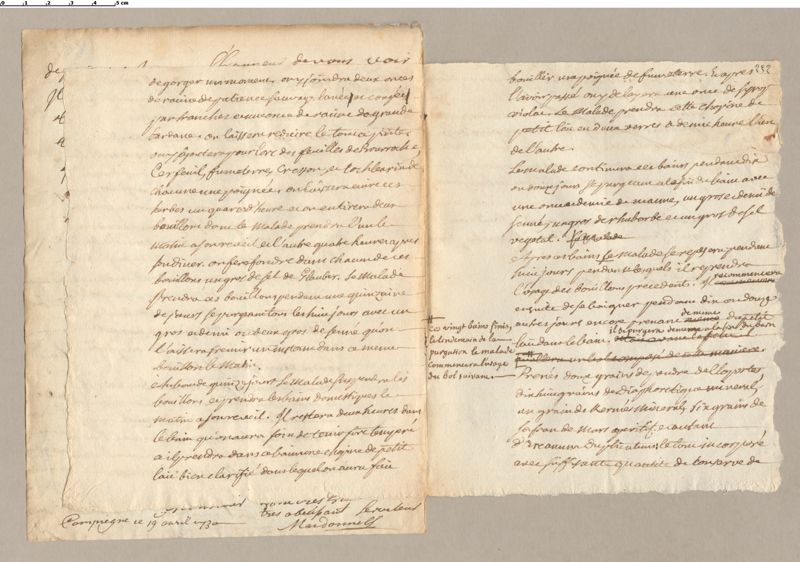 l'honneur de vous voir
de gorger un moment, on y joindra deux onces
de racine de patience sauvage lavée et coupée
par tranches et une once de racine de grande
bardane. on laissera reduire le tout à pinte
on y ajoutera pour lors des feuilles de Bourrache,
Cerfeuil, fumeterre, Cresson, et Cochlearia de
chacune une poignée, on laissera cuire ces
herbes un quart d'heure et on en tirera deux
bouillons dont le Malade prendra l'un le
matin a son reveil et l'autre quatre heures apres
son diner. on fera fondre dans chacun de ces
bouillons un gros de sel de Glauber. Le Malade
prendra ces bouillons pendant une quinzaine
de jours se purgeant tous les huit jours avec un
gros et demi ou deux gros de senné qu'on
laissera fremir un instant dans ce meme
bouillon le Matin.
et au bout de quinze jours Le Malade suspendra les
bouillons et prendra les bains domestiques le
matin a son reveil. Il restera deux heures dans
le bain qu'on aura soin de tenir fort temperé
et il prendra dans ce bain une chopine de petit
lait bien clarifié dans lequel on aura fait
Monsieur votre tres
tres obeissant serviteur
Compiegne ce 19 avril 1730
Macdonnell
252
bouillir une poignée de fumeterre. Et apres
l'avoir passé on y delayera une once de syrop
violat. Le Malade prendra cette chopine de
petit lait en deux verres a demie heure l'un
de l'autre.
Le Malade continuera ces bains pendant dix
ou douze jours se purgeant a la fin du bain avec
une once et demie de manne, un gros et demi de
senné, un gros de rhubarbe et un gros de sel
vegetal.
Apres ces bains le Malade se reposera pendant
huit jours pendant lesquels il reprendra
l'usage des bouillons precedents. Il recommencera
ensuite de se baigner pendant dix ou douze
autres jours encore prenant de meme du petit
lait dans le bain. il se purgera de meme a la fin du bain
Prenés douze grains de poudre de Cloportes
dix huit grains de diaphoretique mineral,
un grain de Kermes Mineral, six grains de
safran de Mars aperitif et autant
d'Arcanum duplicatum le tout incorporé
avec suffisante quantité de conserve de
# Ces vingt bains finis,
et le lendemain de la
purgation le malade
Commencera l'usage
du bol suivant.